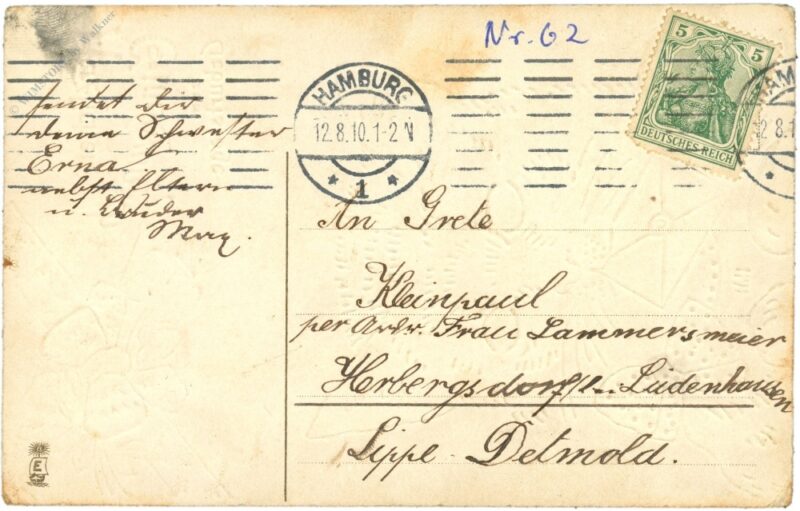 Nr. 62
5 5
DEUTSCHES REICH
HAMBURG
12.8.10.1-2 N
* 1 *
HAM
12 8.1
*
sendet dir
deine Schwester
Erna
nebst Eltern
u. Bruder
Max.
An Grete
Kleinpaul
per Adr. Frau Lammersmeier
Herbergsdorf Lüdenhausen
Lippe-Detmold.
E